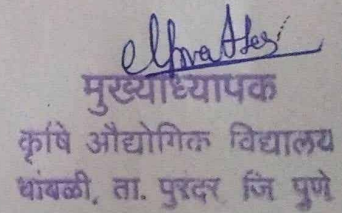 मुख्याध्यापक
कृषि औद्योगिक विद्यालय
धांबळी, ता. पुरंदर जि पुणे